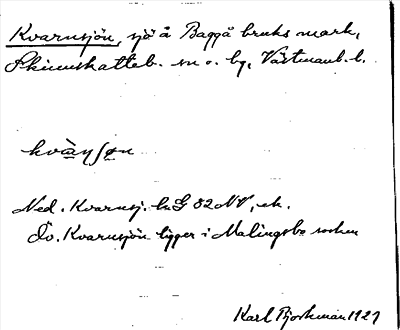 Kvarnsjön, sjö å Baggå bruks mark,
Skinnskatteb. sn o. bg, Västmanl. l.
kvànʃøn
Ned. Kvarnsj. h.G 82 NV, ek.
Öv. Kvarnsjön ligger i Malingsbo socken
Karl Björkman 1927